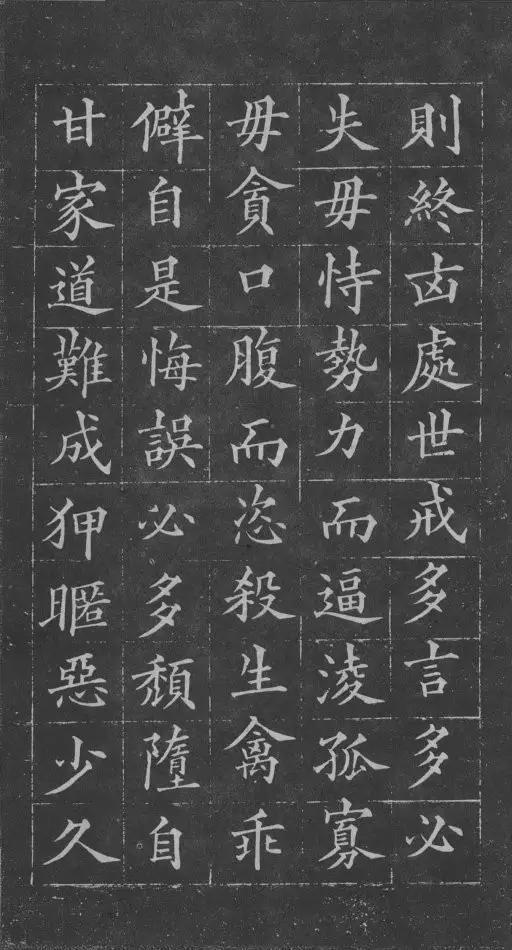 則終凶處世戒多言多必
失毋恃勢力而逼淩孤寡
毋貪口腹而恣殺生禽乖
僻自是悔誤必多頹墮自
甘家道難成狎暱惡少久